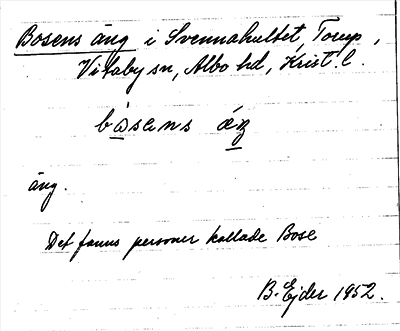 Bosens äng i Svennahultet, Torup,
Vitaby sn, Albo hd, Krist. l.
bosens äŋ
äng.
Det fanns personer kallade Bose
B. Ejder 1952.